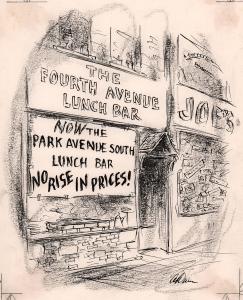 THE
FOURTH AVENUE
LUNCH BAR
NOW THE
PARK AVENUE SOUTH
LUNCH BAR
NO RISE IN PRICES!
JOE'S